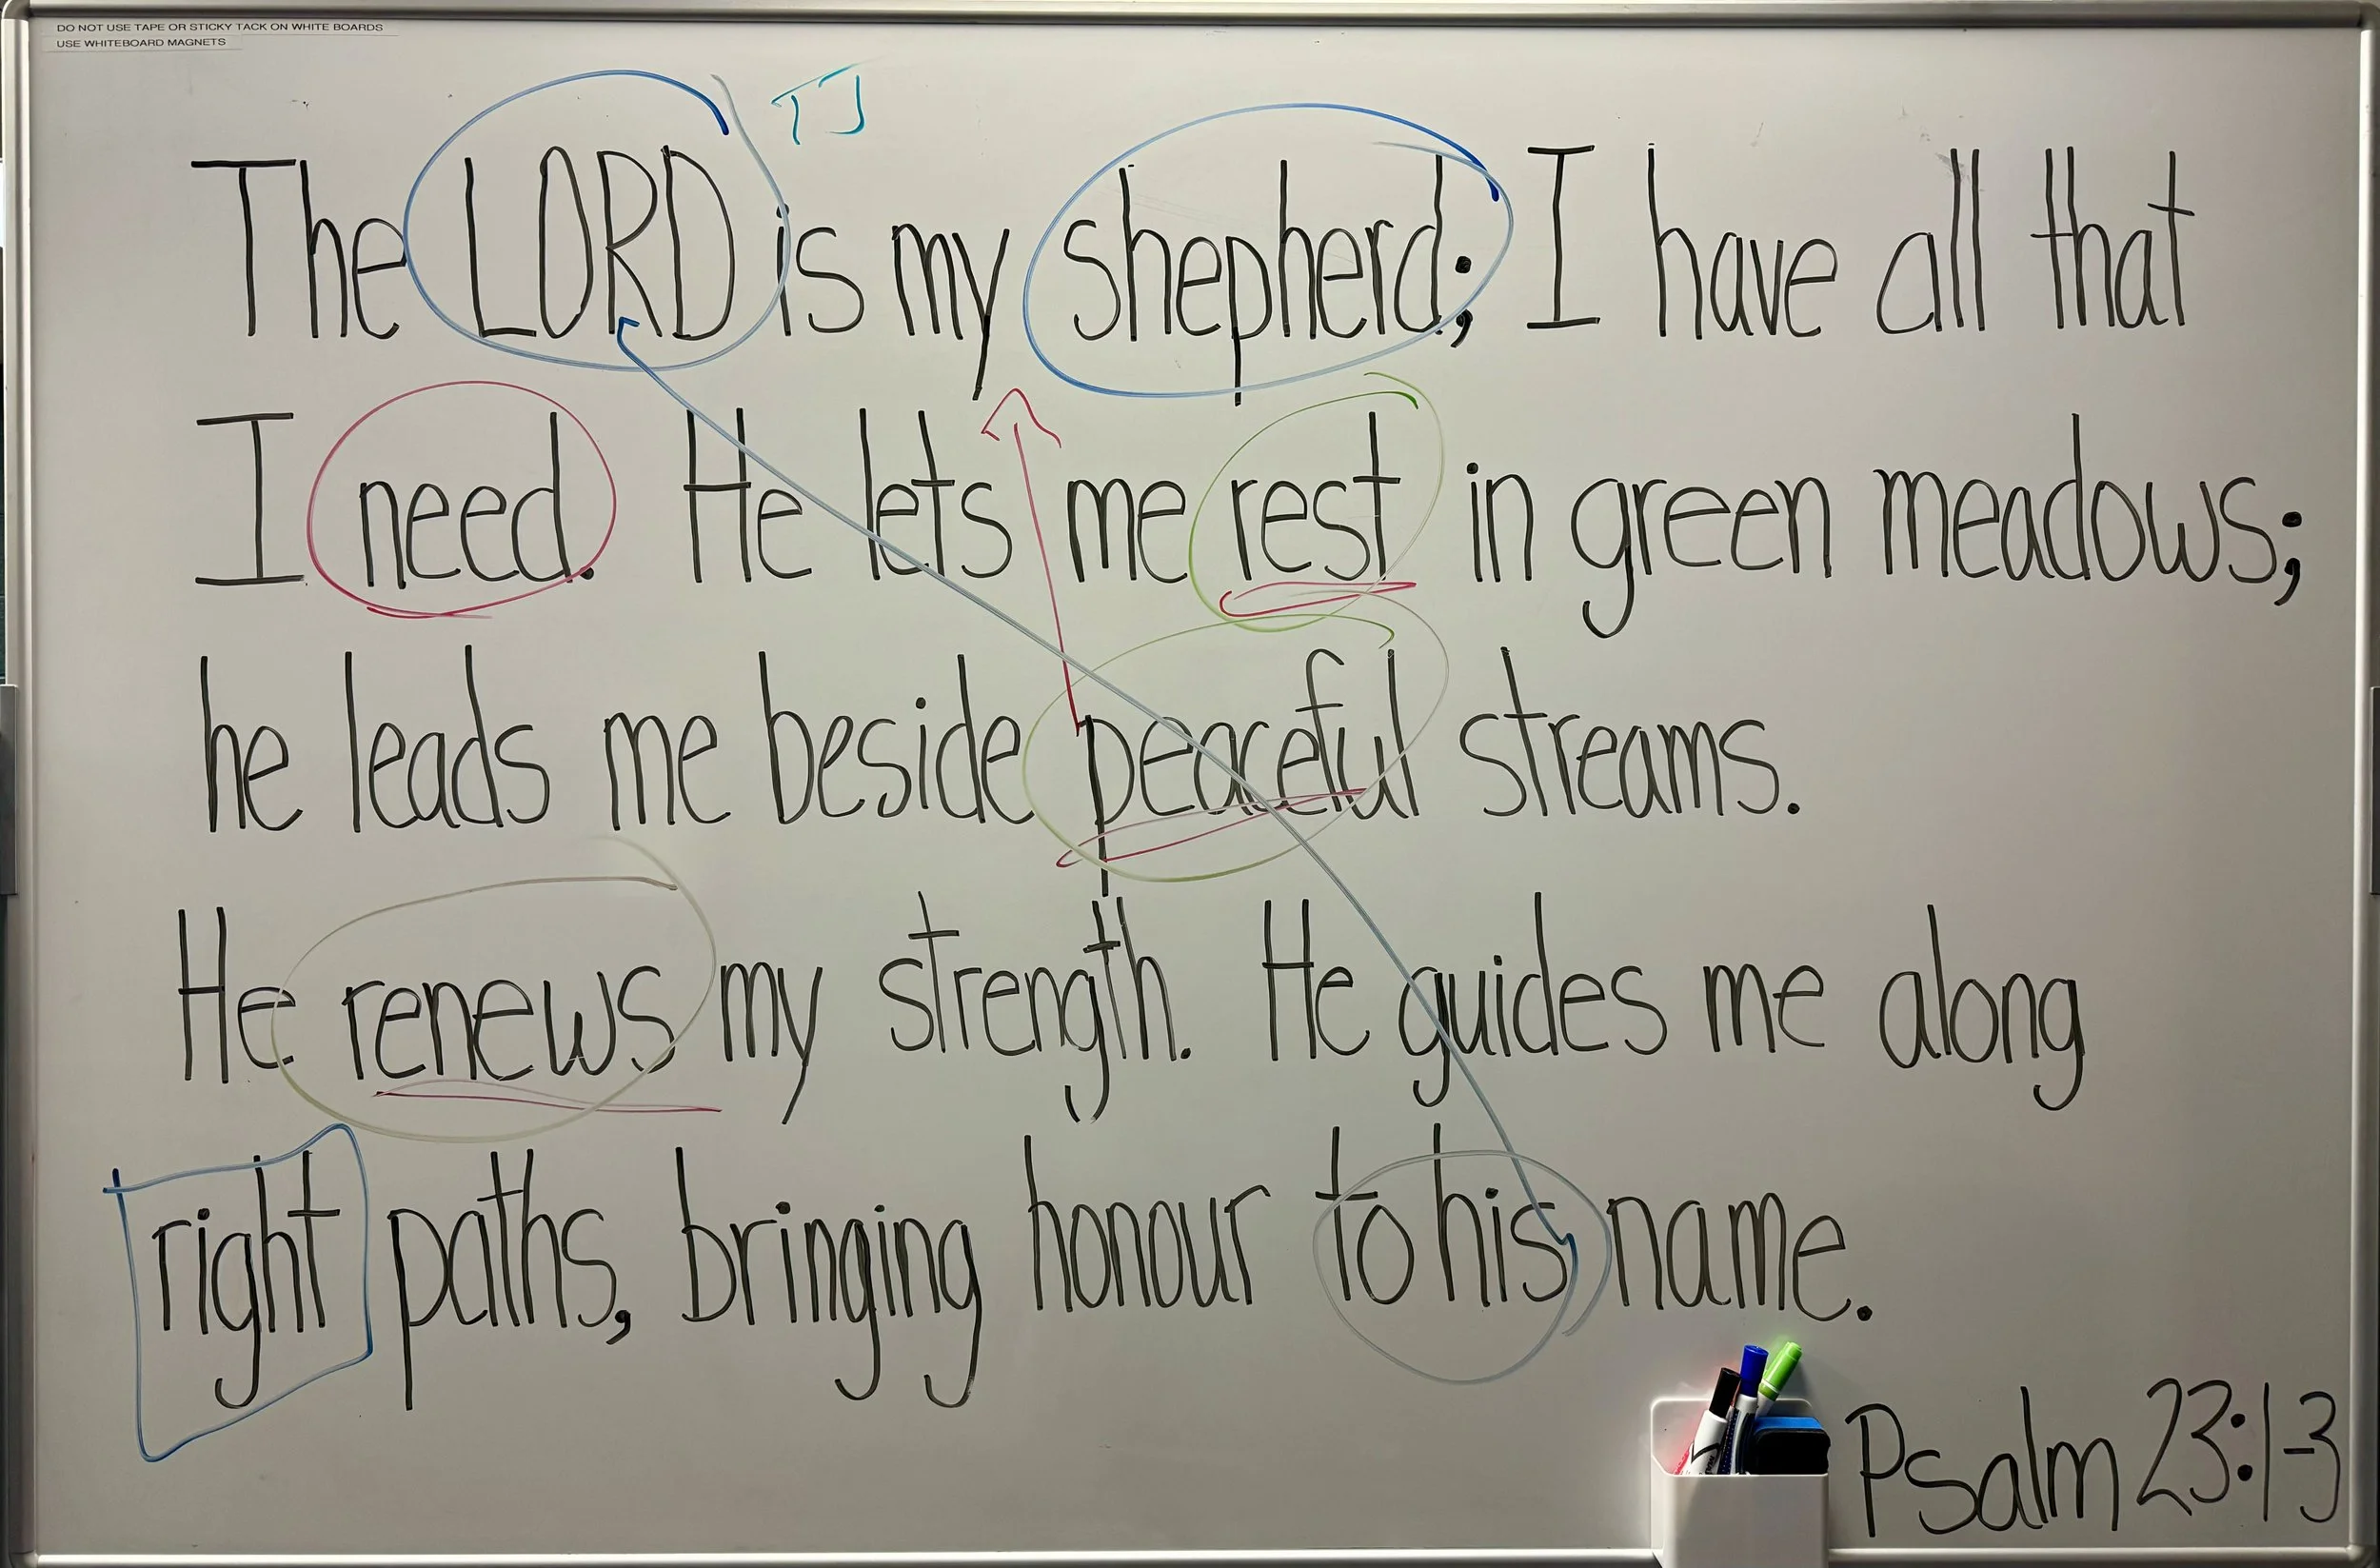 DO NOT USE TAPE OR STICKY TACK ON WHITE BOARDS
USE WHITEBOARD MAGNETS
TJ
The LORD is my shepherd; I have all that
I need. He lets me rest in green meadows;
he leads me beside peaceful streams.
He renews my strength. He guides me along
right paths, bringing honour to his name.
Psalm 23:1-3